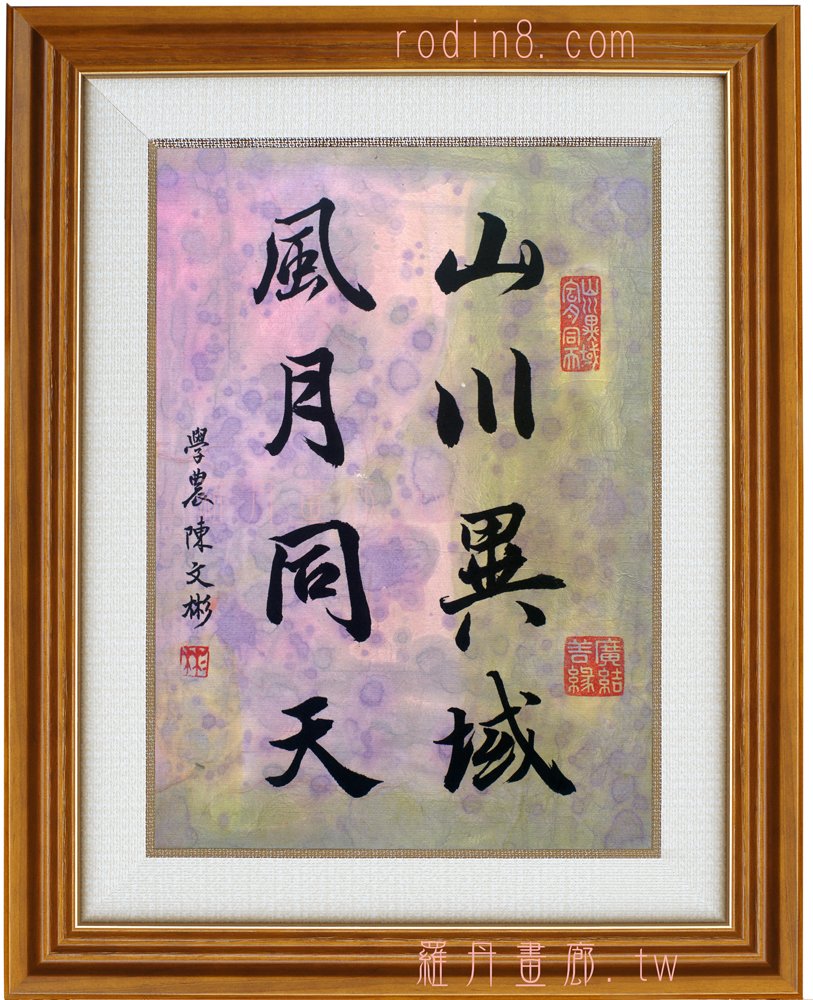 rodin8.com
山川異域
風月同天
學農陳文彬
山川異域
風月同天
廣結
善緣
彬
羅丹畫廊.tw